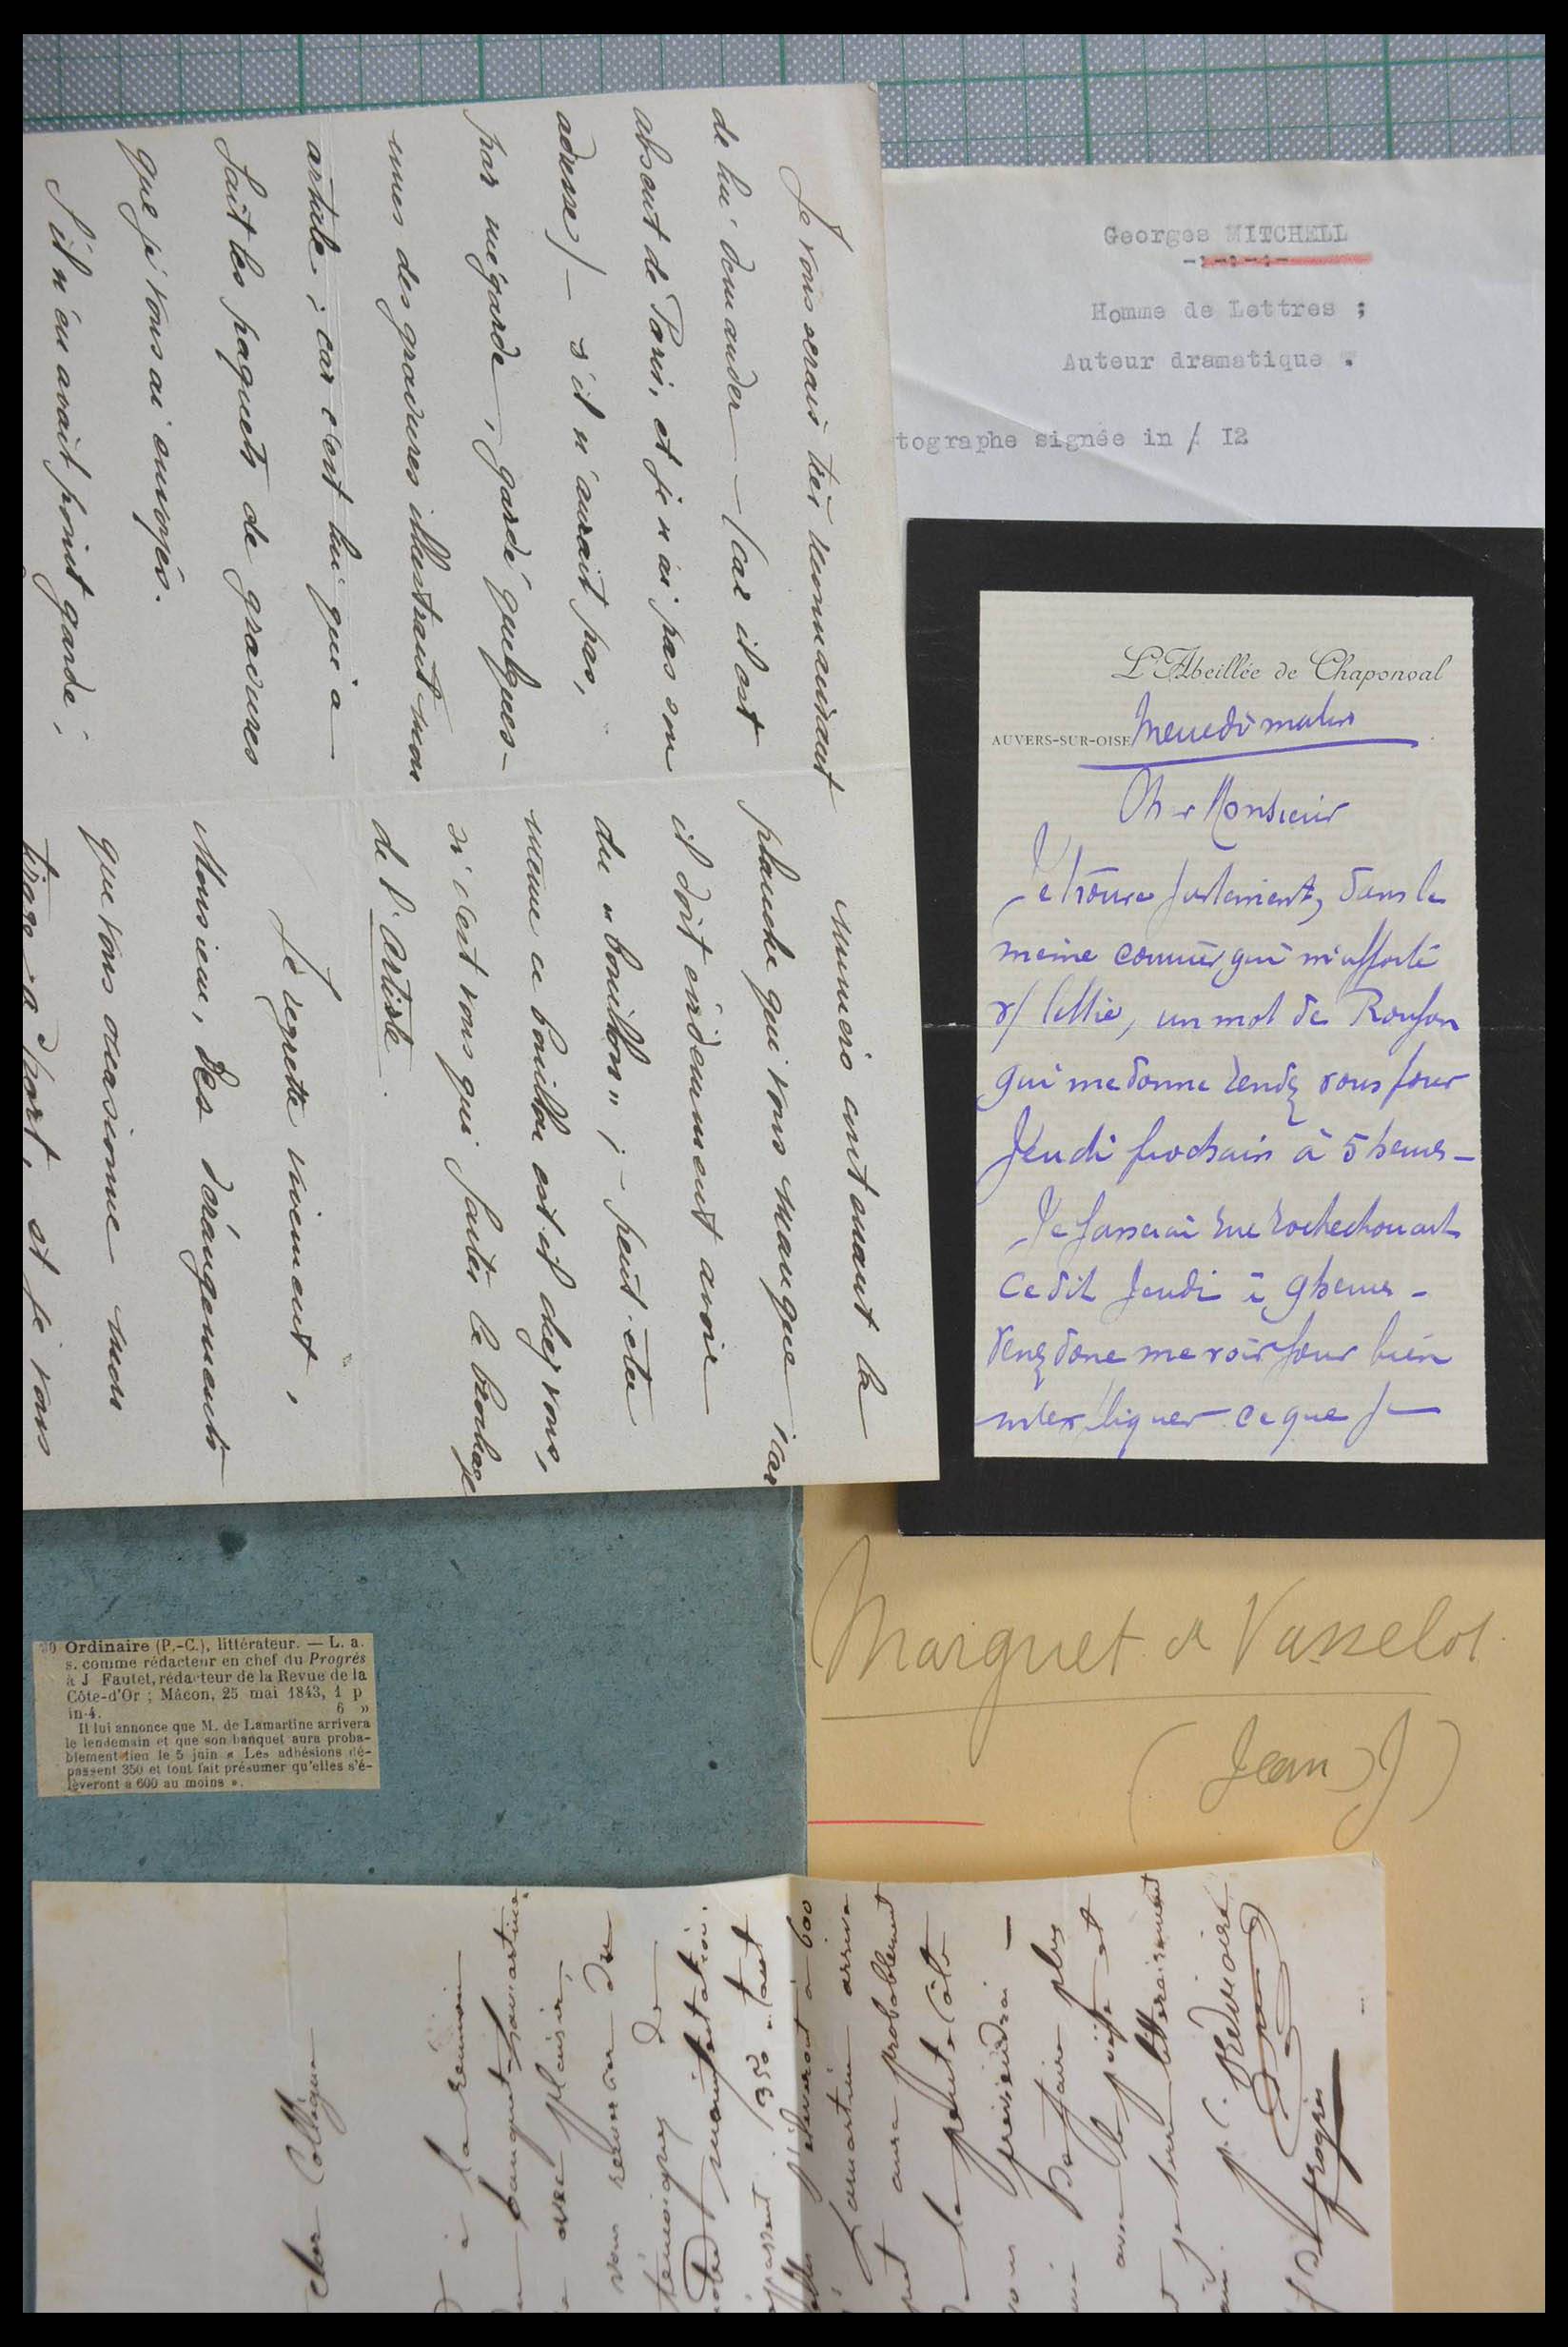 Je vous serais très reconnaissant
de lui demander — (car il est
absent de Paris, et je n'ai pas son
adresse) — s'il n'aurait pas,
par mégarde, gardé quelques-
unes des gravures illustrant mon
article ; car c'est lui qui a
fait les paquets de gravures
que je vous ai envoyés.
S'il n'en avait point gardé,
numéro contenant la
planche qui vous manque, car
il doit évidemment avoir
du "bouillon" ; peut-être
même ce bouillon est-il chez vous,
si c'est vous qui faites le brochage
de l'Artiste.
Je regrette vivement,
Monsieur, des dérangements
que vous occasionne mon
tirage à part, et je vous
Georges MITCHELL
-:-:-:-
Homme de Lettres ;
Auteur dramatique .
tographe signée in / I2
L'Abeillée de Chaponval
AUVERS-SUR-OISE Mercredi matin
Cher Monsieur
Je trouve justement, dans le
même courrier qui m'apporte
v/ lettre, un mot de
qui me donne rendez vous pour
Jeudi prochain à 5 heures —
Je passerai rue Rochechouart
ce dit Jeudi à 9 heures —
Venez donc me voir pour bien
m'expliquer ce que je
Ordinaire (P.-C.), littérateur. — L. a.
s. comme rédacteur en chef du Progrès
à J Fautet, rédacteur de la Revue de la
Côte-d'Or ; Mâcon, 25 mai 1843, 1 p
in-4. 6 »
Il lui annonce que M. de Lamartine arrivera
le lendemain et que son banquet aura proba-
blement lieu le 5 juin « Les adhésions dé-
passent 350 et tout fait présumer qu'elles s'é-
lèveront à 600 au moins ».
Marquet de Vasselot
(Jean J)
Cher Collègue
à la réunion
banquet Lamartine
avec plaisir,
vous raison du
témoignez de
manifestation.
passent 350 et tout
elles s'élèveront à 600
Lamartine arrive
aura probablement
la petite côte
vous préviendrai —
Bonfaire plus
avec le
je suis littérairement
Ordinaire
du Progrès